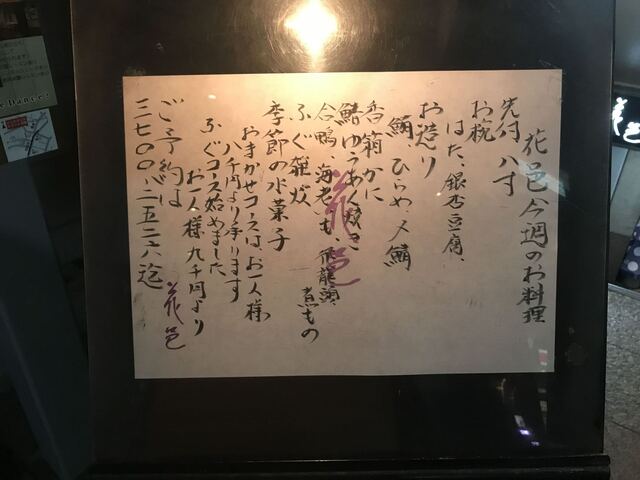 花邑今週のお料理
先付 八寸
お椀
はた、銀杏豆腐、
お造り
鮪、ひらめ、〆鯖
香箱かに
鰆ゆうあん焼き
合鴨、海老いも、飛龍頭、煮もの
ふぐ雑炊
季節の水菓子
おまかせコースは、お一人様
八千円より承ります
ふぐコース始めました
お一人様九千円より
ご予約は
三七〇〇-二五二六迄
花邑
花邑